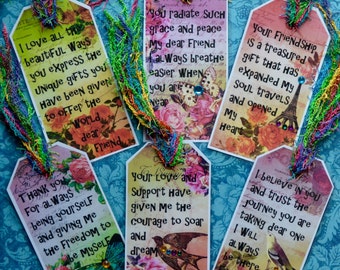 I love all the
beautiful ways
you express the
unique gifts you
have been given
to offer the
World
dear
friend
You radiate such
grace and peace
my dear friend
I always breathe
easier when
you are
near
Your friendship
is a treasured
gift that has
expanded my
soul travels
and opened
my
heart
Thank you
for always
being yourself
and giving me
the freedom to
be myself
Your love and
support have
given me the
courage to soar
and
dream
I believe in you
and trust the
journey you are
taking dear one
I will
always
be there